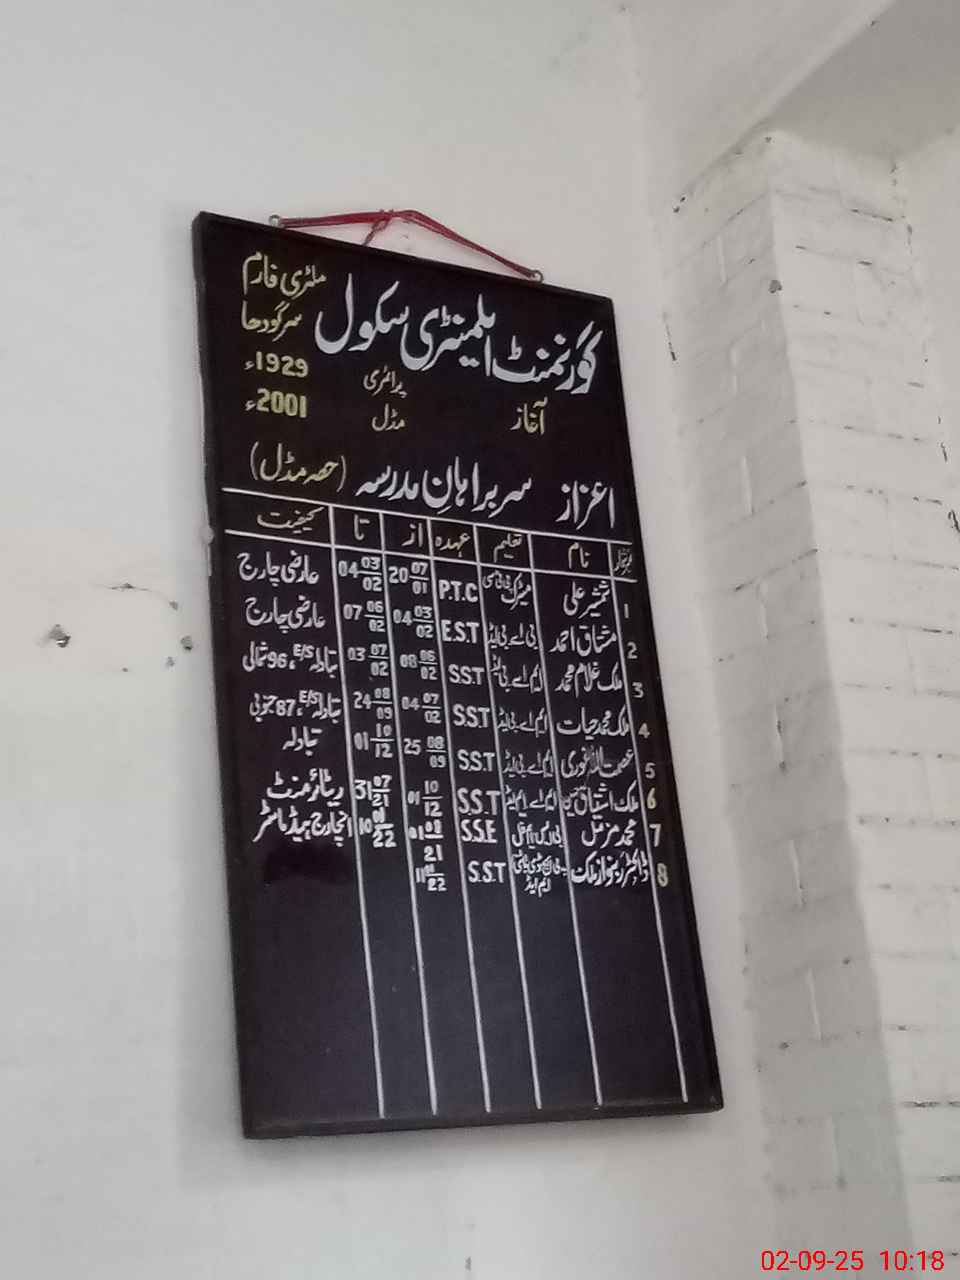 گورنمنٹ ایلمینٹری سکول ملٹری فارم سرگودھا
آغاز پرائمری 1929ء
مڈل 2001ء
اعزاز سربراہانِ مدرسہ (حصہ مڈل)
نمبرشمار نام تعلیم عہدہ از تا کیفیت
1 شمشیر علی میٹرک پی ٹی سی P.T.C 20 07/01 04 03/02 عارضی چارج
2 مشتاق احمد بی اے بی ایڈ E.S.T 04 03/02 07 06/02 عارضی چارج
3 ملک غلام محمد ایم اے بی ایڈ S.S.T 08 06/02 03 07/02 تبادلہ E/S، 96 شمالی
4 ملک محمد حیات ایم اے بی ایڈ S.S.T 04 07/02 24 08/09 تبادلہ E/S، 87 جنوبی
5 عصمت اللہ غوری ایم اے بی ایڈ S.S.T 25 08/09 01 10/12 تبادلہ
6 ملک اشتیاق حسین ایم اے ایم ایڈ S.S.T 01 10/12 31 07/21 ریٹائرمنٹ
7 محمد مزمل بی ایس ایم فل S.S.E 01 08/21 10 /22 انچارج ہیڈ ماسٹر
8 ڈاکٹر ربنواز ملک پی ایچ ڈی ایم ایڈ S.S.T 11 /22
02-09-25 10:18